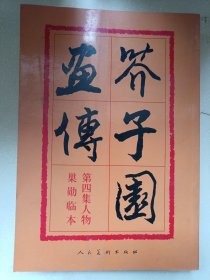 芥子園
畫傳
第四集人物
巢勛临本
人民美术出版社